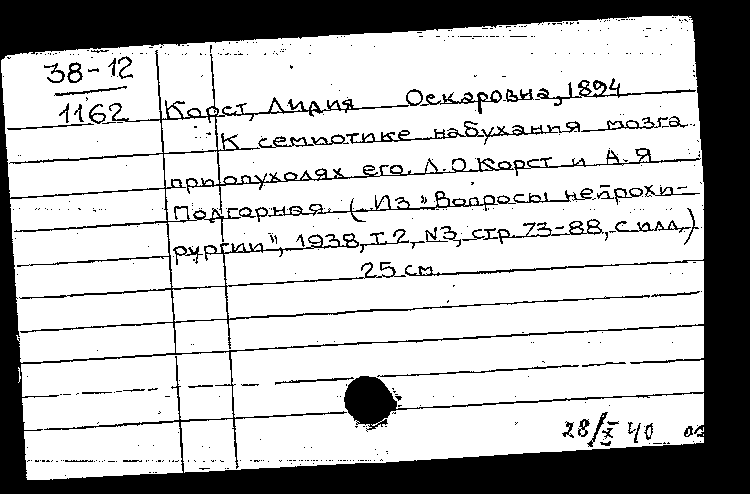 38-12
1162
Корст, Лидия Оскаровна, 1894
К семиотике набухания мозга
при опухолях его. Л.О.Корст и А.Я
Подгорная. (Из "Вопросы нейрохи-
рургии", 1938, т.2, N3, стр. 73-88, с илл.)
25 см.
28/X 40